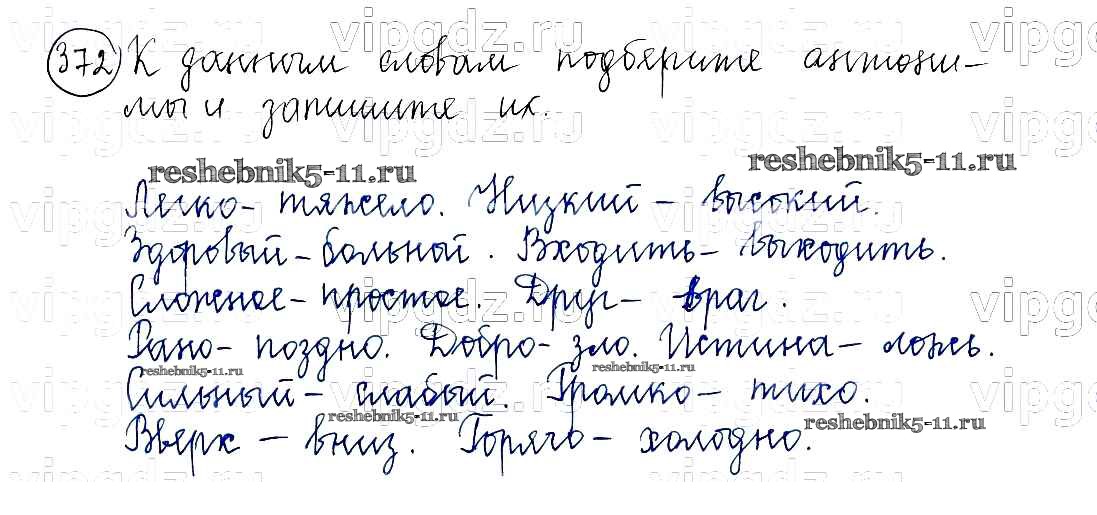 372 К данным словам подберите антони-
мы и запишите их.
reshebnik5-11.ru reshebnik5-11.ru
Легко – тяжело. Низкий – высокий.
Здоровый – больной. Входить – выходить.
Сложное – простое. Друг – враг.
Рано – поздно. Добро – зло. Истина – ложь.
reshebnik5-11.ru reshebnik5-11.ru
Сильный – слабый. Громко – тихо.
reshebnik5-11.ru reshebnik5-11.ru
Вверх – вниз. Горячо – холодно.
vipgdz.ru